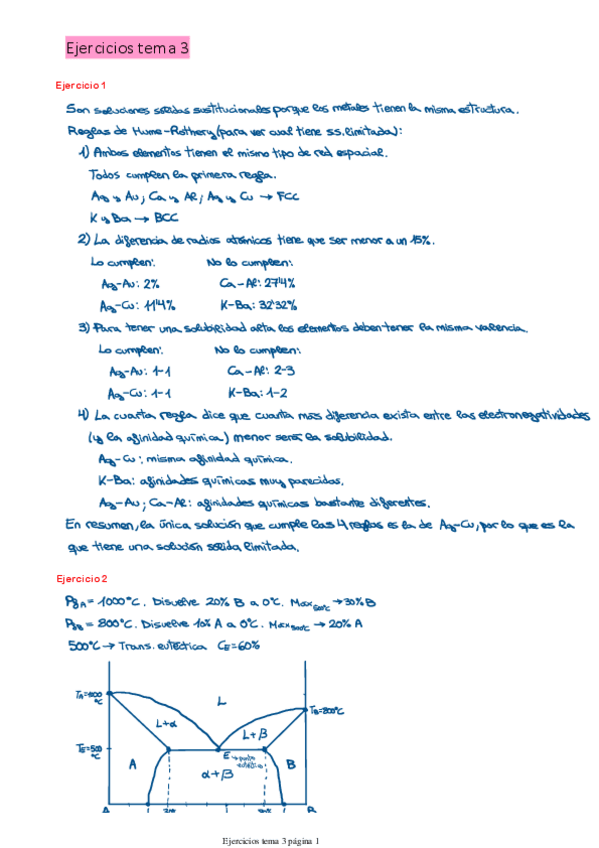 Ejercicios tema 3
Ejercicio 1
Son soluciones sólidas sustitucionales porque los metales tienen la misma estructura.
Reglas de Hume-Rothery (para ver cual tiene ss. limitada):
1) Ambos elementos tienen el mismo tipo de red espacial.
Todos cumplen la primera regla.
Ag y Au; Ca y Al; Ag y Cu → FCC
K y Ba → BCC
2) La diferencia de radios atómicos tiene que ser menor a un 15%.
Lo cumplen: No lo cumplen:
Ag-Au: 2% Ca-Al: 27'4%
Ag-Cu: 11'4% K-Ba: 32'32%
3) Para tener una solubilidad alta los elementos deben tener la misma valencia.
Lo cumplen: No lo cumplen:
Ag-Au: 1-1 Ca-Al: 2-3
Ag-Cu: 1-1 K-Ba: 1-2
4) La cuarta regla dice que cuanta más diferencia exista entre las electronegatividades
(y la afinidad química) menor será la solubilidad.
Ag-Cu: misma afinidad química.
K-Ba: afinidades químicas muy parecidas.
Ag-Au; Ca-Al: afinidades químicas bastante diferentes.
En resumen, la única solución que cumple las 4 reglas es la de Ag-Cu, por lo que es la
que tiene una solución sólida limitada.
Ejercicio 2
= 1000°C. Disuelve 20% B a 0°C. Max → 30% B
= 800°C. Disuelve 10% A a 0°C. Max → 20% A
500°C → Trans. eutéctica CE=60%
L
TB=800°C
°C
L+α
L+β
TE=500
°C
E → punto eutéctico
A
α+β
B
A
B
Ejercicios tema 3 página 1